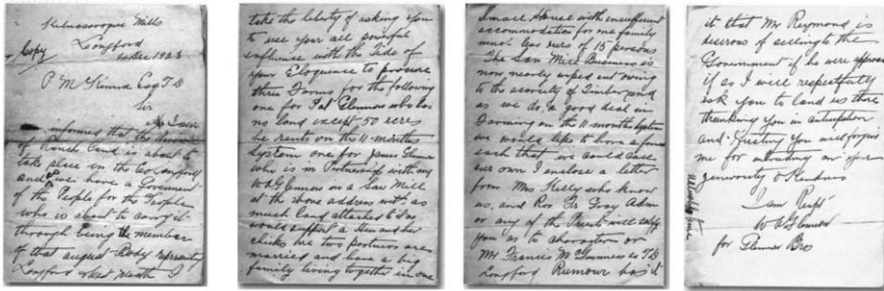 Mills
Longford
Copy 10 Dec 1923
P McKenna Esq TD
Sir
As I am
informed that the division
of Ranch Land is about to
take place in the Co Longford
and we have a Government
of the People for the People
who is about to carry it
through being the member
of that august Body representing
Longford West Meath I
take the liberty of asking you
to use your all powerful
influence with the Tide of
your Eloquence to procure
three Farms for the following
one for Pat Glennon who has
no land except 50 acres
he rents on the 11 months
System one for James Glennon
who is in Partnership with my
W A Glennon in a Saw Mill
at the above address with as
much land attached to it as
would support a Hen and her
chicks we two partners are
married and have a big
family living together in one
Small House with insufficient
accommodation for one family
much less ours of 15 persons
The Saw Mill Business is
now nearly wiped out owing
to the scarcity of Timber and
as we do a good deal in
Farming on the 11 months System
we would like to have a farm
each that we could call
our own I enclose a letter
from Mrs Kelly who know
us, and Rev Fr Gray Adm
or any of the Priests will satisfy
you as to character or
Mr Francis McGuinness Ex TD
Longford Rumour has it
it that Mr Reymond is
desirous of selling to the
Government if he were approached
if so I will respectfully
ask you to land us there
thanking you in anticipation
and trusting you will forgive
me for intruding on your
generosity & Kindness
I am Respt
W A Glennon
for Glennon Bros